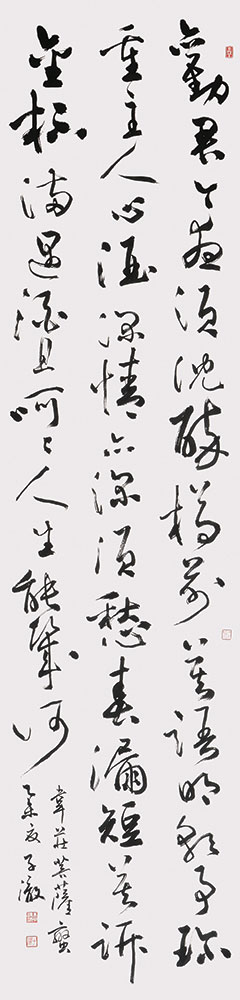 勸君今夜須沈醉樽前莫話明朝事珍
重主人心酒深情亦深須愁春漏短莫訴
金杯滿遇酒且呵々人生能幾何
韋莊菩薩蠻
乙 夏子